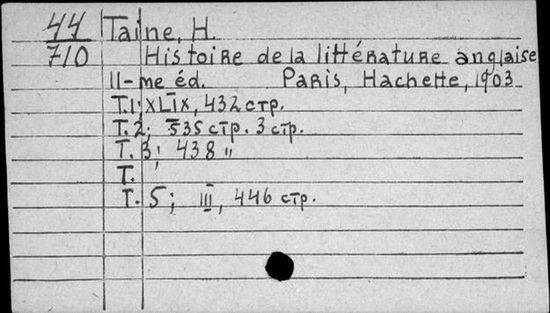 44 Taine, H.
710 Histoire de la littérature anglaise
11-me éd. Paris, Hachette, 1903
T.1; XLIX, 432 стр.
T. 2; 535 стр. 3 стр.
T. 3; 438 "
T. ;
T. 5; III, 446 стр.